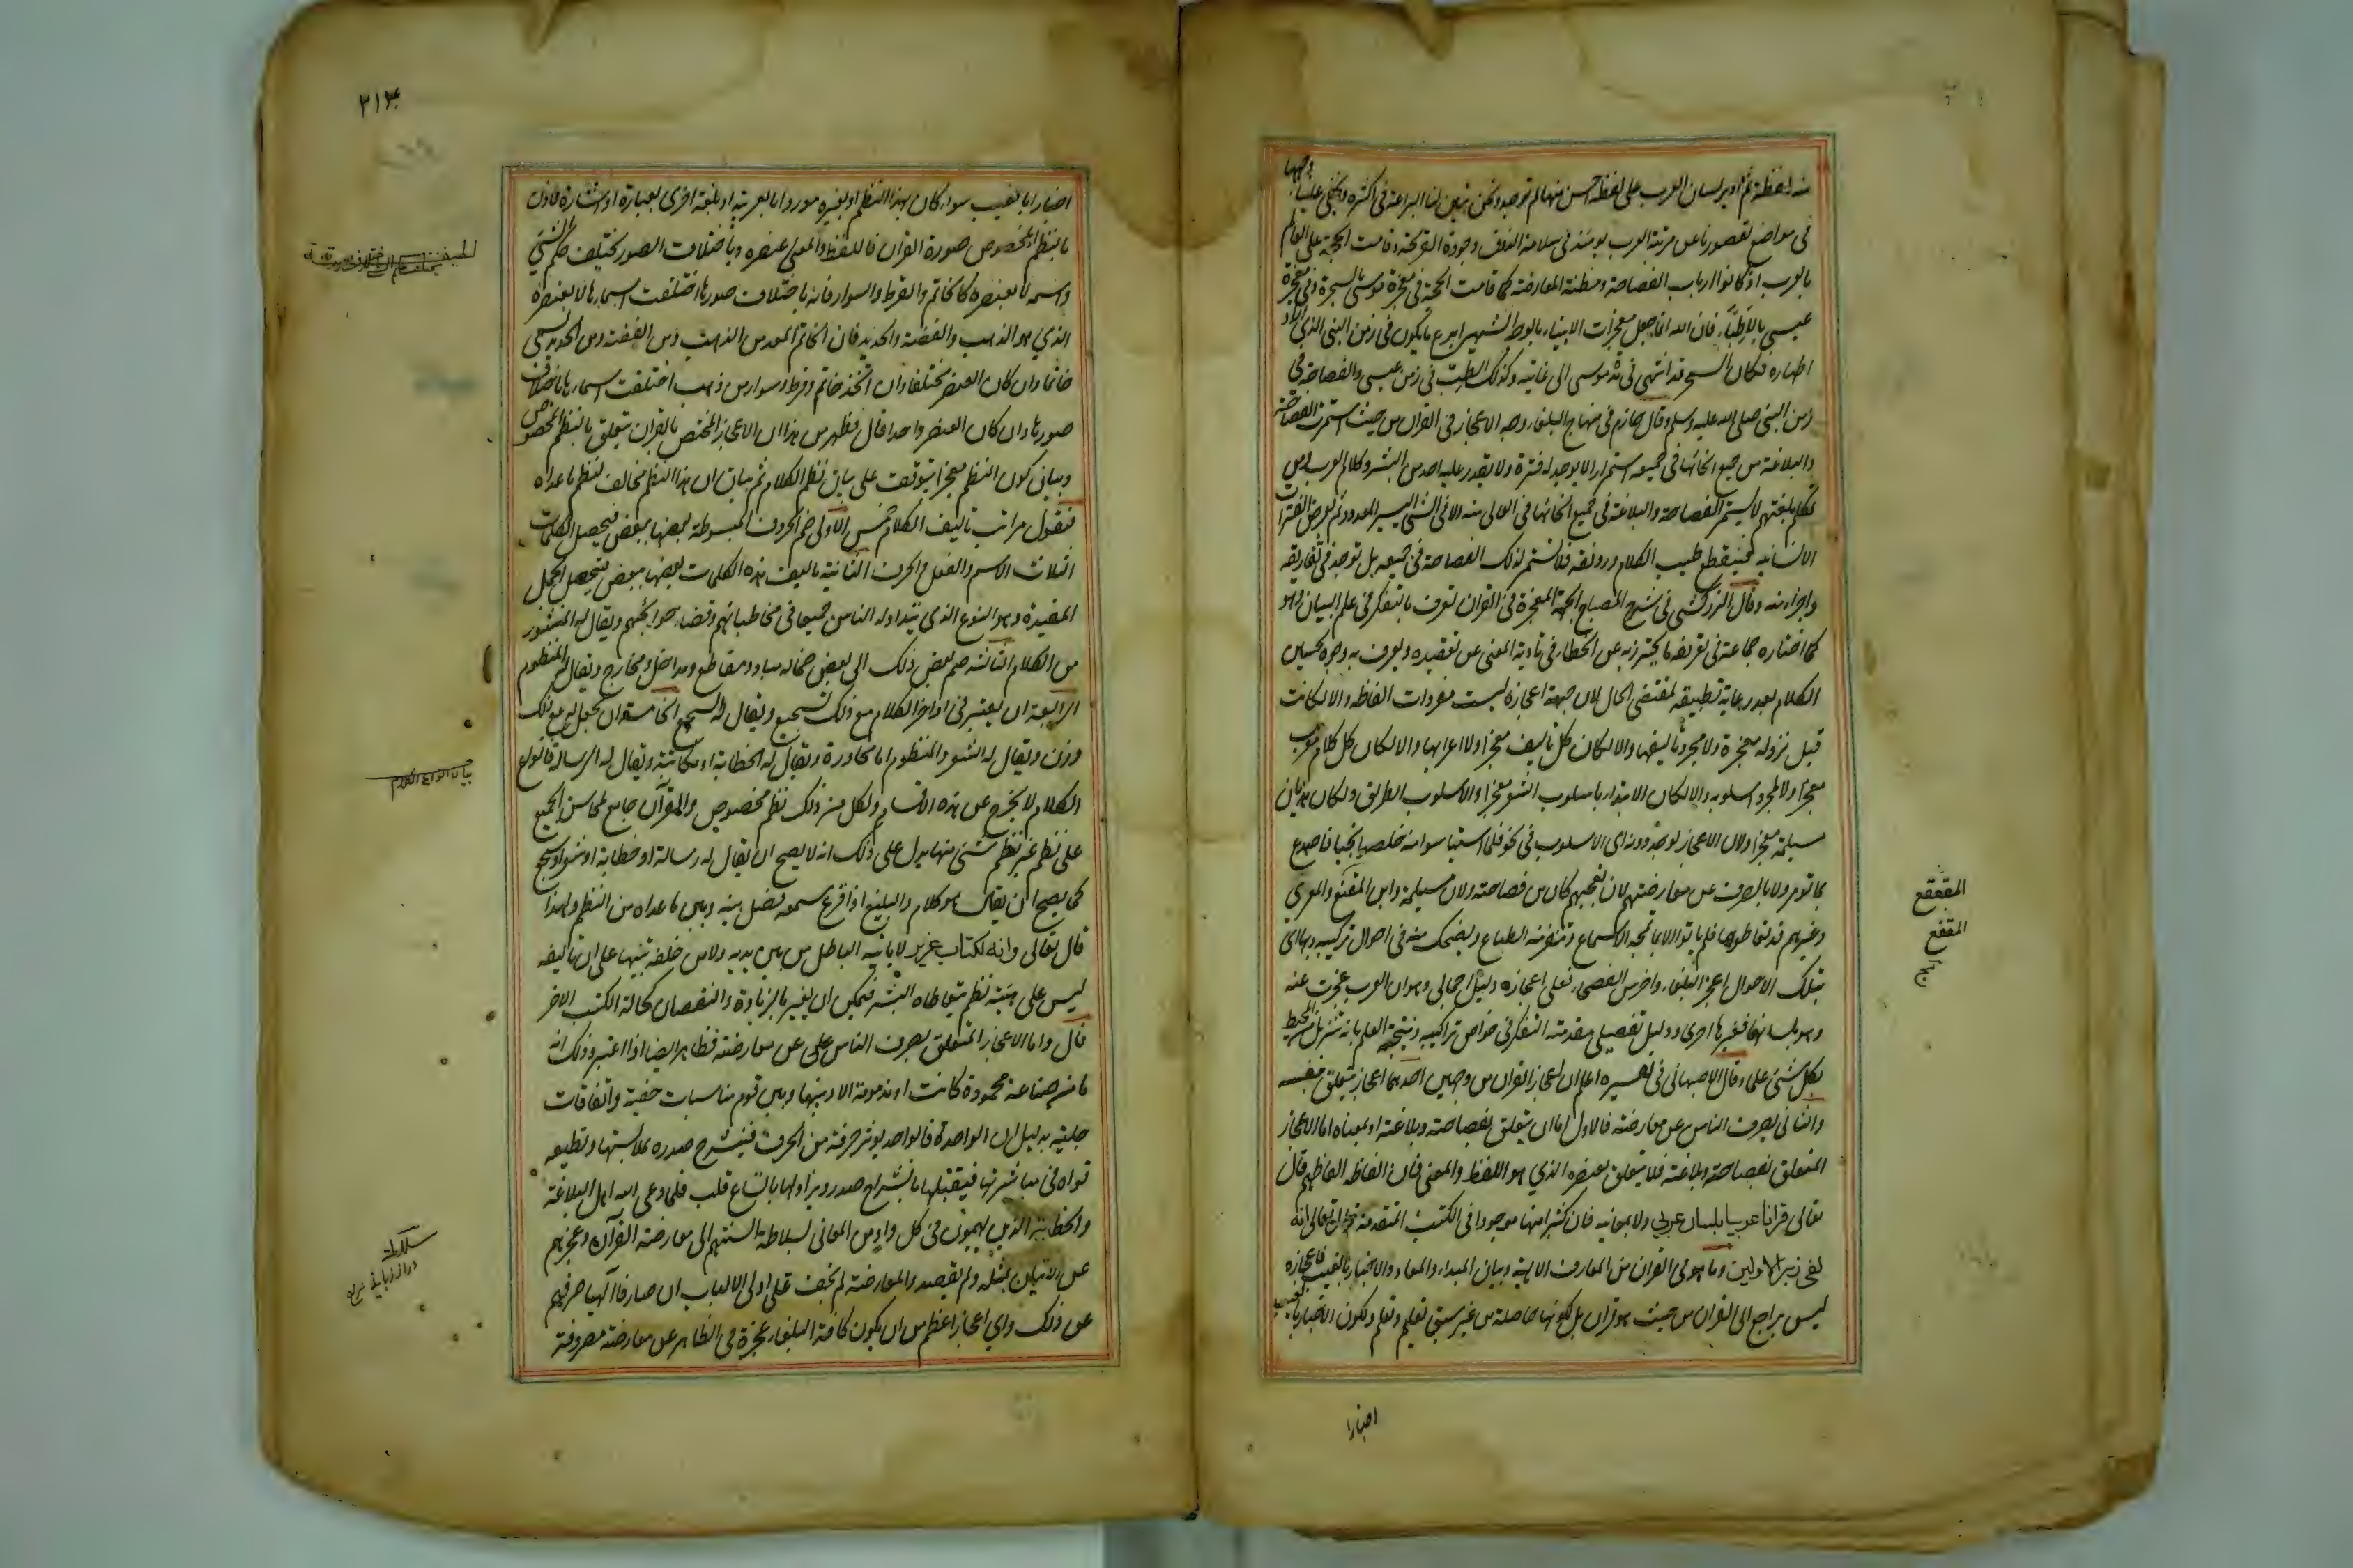 منه لفظة ثم ادير لسان العرب على لفظة احسن منها لم توجد ونحن يتبين لنا البراعة في اكثره ويخفى علينا وجهها
في مواضع لقصورنا عن مرتبة العرب يومئذ في سلامة الذوق وجودة القريحة وقامت الحجة على العالم
بالعرب اذ كانوا ارباب الفصاحة ومظنة المعارضة كما قامت الحجة في معجزة موسى بالسحرة وفي معجزة
عيسى بالاطباء فان الله انما جعل معجزات الانبياء بالوجه الشهير ابرع ما يكون في زمن النبي الذي اراد
اظهاره فكان السحر قد انتهى في مدة موسى الى غايته وكذلك الطب في زمن عيسى والفصاحة في
زمن النبي صلى الله عليه وسلم وقال حازم في منهاج البلغاء وجه الاعجاز في القران من حيث استمرت الفصاحة
والبلاغة من جميع انحائها في جميعه استمرارا لا يوجد له فترة ولا يقدر عليه احد من البشر وكلام العرب ومن
تكلم بلغتهم لا يستمر الفصاحة والبلاغة في جميع انحائها في العالي منه الا في الشئ اليسير المعدود ثم تعرض الفترات
الانسانية فينقطع طيب الكلام ورونقه فلا تستمر لذلك الفصاحة في جميعه بل توجد في تفاريقه
واجزاء منه وقال المراكشي في شرح المصباح الجهة المعجزة في القران تعرف بالتفكر في علم البيان وهو
كما اختاره جماعة في تعريفه ما يحترز به عن الخطاء في تادية المعنى عن تعقيده ويعرف به وجوه تحسين
الكلام بعد رعاية تطبيقه لمقتضى الحال لان جهة اعجازه ليست مفردات الفاظه والا لكانت
قبل نزوله معجزة ولا مجرد تاليفها والا لكان كل تاليف معجزا ولا اعرابها والا لكان كل كلام معرب
معجزا ولا مجرد اسلوبه والا لكان الابتداء باسلوب الشعر معجزا والاسلوب الطريق ولكان هذيان
مسيلمة معجزا ولان الاعجاز يوجد دونه اي الاسلوب في نحو فلما استيأسوا منه خلصوا نجيا فاصدع
بما تومر ولا بالصرف عن معارضتهم لان تعجبهم كان من فصاحته ولان مسيلمة وابن المقفع والمعري
وغيرهم قد تعاطوها فلم ياتوا الا بما تمجه الاسماع وتنفر منه الطباع ويضحك منه في احوال تركيبه وبها اي
بتلك الاحوال اعجز البلغاء واخرس الفصحاء فعلى اعجازه دليل اجمالي وهو ان العرب عجزت عنه
وهو بلسانها فغيرها احرى ودليل تفصيلي مقدمته التفكر في خواص تراكيبه ونتيجته العلم بانه تنزيل من المحيط
بكل شئ علما وقال الاصبهاني في تفسيره اعلم ان اعجاز القران من وجهين احدهما اعجاز يتعلق بنفسه
والثاني بصرف الناس عن معارضته فالاول اما ان يتعلق بفصاحته وبلاغته او بمعناه اما الاعجاز
المتعلق بفصاحته وبلاغته فلا يتعلق بعنصره الذي هو اللفظ والمعنى فان الفاظه الفاظهم قال
تعالى قرانا عربيا بلسان عربي ولا بمعانيه فان كثيرا منها موجود في الكتب المتقدمة قال تعالى انه
لفي زبر الاولين وما هو في القران من المعارف الالهية وبيان المبداء والمعاد والاخبار بالغيب فاعجازه
ليس براجع الى القران من حيث هو قران بل لكونها حاصلة من غير سبق تعليم وتعلم ولكون الاخبار بالغيب
المقفع
المقفع
اخبارا
٢١٣
اخبارا بالغيب سواء كان بهذا النظم او بغيره مورودا بالعربية او بلغة اخرى بعبارة او اشارة فاذن
بالنظم المخصوص صورة القران فاللفظ والمعنى عنصره وباختلاف الصور يختلف حكم الشئ
واسمه لا بعنصره كالخاتم والقرط والسوار فانه باختلاف صورها اختلفت اسماءها لا بعنصره
الذي هو الذهب والفضة والحديد فان الخاتم المعد من الذهب ومن الفضة ومن الحديد يسمى
خاتما وان كان العنصر مختلفا وان اتخذ خاتم وقرط وسوار من ذهب اختلفت اسماءها باختلاف
صورها وان كان العنصر واحدا قال فظهر من هذا ان الاعجاز المختص بالقران يتعلق بالنظم المخصوص
وبيان كون النظم معجزا يتوقف على بيان نظم الكلام ثم بيان ان هذا النظم مخالف لنظم ما عداه
فنقول مراتب تاليف الكلام خمس الاولى ضم الحروف المبسوطة بعضها ببعض فيحصل الكلمات
الثلاث الاسم والفعل والحرف الثانية تاليف هذه الكلمات بعضها ببعض فيحصل الجمل
المفيدة وهو النوع الذي يتداوله الناس جميعا في مخاطباتهم وقضاء حوايجهم ويقال له المنثور
من الكلام الثالثة ضم بعض ذلك الى بعض ضما له مباد ومقاطع ومداخل ومخارج ويقال له المنظوم
الرابعة ان يعتبر في اواخر الكلام مع ذلك تسجيع ويقال له السجع الخامسة ان يجعل له مع ذلك
وزن ويقال له الشعر والمنظوم اما محاورة ويقال له الخطابة او مكاتبة ويقال له الرسالة فانواع
الكلام لا يخرج عن هذه الاقسام ولكل من ذلك نظم مخصوص والقرآن جامع لمحاسن الجميع
على نظم غير نظم شئ منها يدل على ذلك انه لا يصح ان يقال له رسالة او خطابة او شعر او سجع
كما يصح ان يقال هو كلام والبليغ اذا قرع سمعه فصل بينه وبين ما عداه من النظم ولهذا
قال تعالى وانه لكتاب عزيز لا ياتيه الباطل من بين يديه ولا من خلفه تنبيها على ان تاليفه
ليس على هيئة نظم يتعاطاه البشر فيمكن ان يغير بالزيادة والنقصان كحالة الكتب الاخر
قال واما الاعجاز المتعلق بصرف الناس على عن معارضته فظاهر ايضا اذا اعتبر وذلك انه
ما من صناعة محمودة كانت او مذمومة الا وبينها وبين قوم مناسبات خفية واتفاقات
جلية بدليل ان الواحد فالواحد يوثر حرفة من الحرف فينشرح صدره بملابستها وتطيعه
قواه في مباشرتها فيقبلها بانشراح صدر ويزاولها باتساع قلب فلما دعى الله اهل البلاغة
والخطابة الذين يهيمون في كل واد من المعاني بسلاطة السنتهم الى معارضة القرآن وعجزهم
عن الاتيان بمثله ولم يقصدوا المعارضة لم يخف على اولي الالباب ان صارفا الهيا صرفهم
عن ذلك واي اعجاز اعظم من ان يكون كافة البلغاء عجزة في الظاهر عن معارضته مصروفة
بيان انواع الكلام
سلاطة